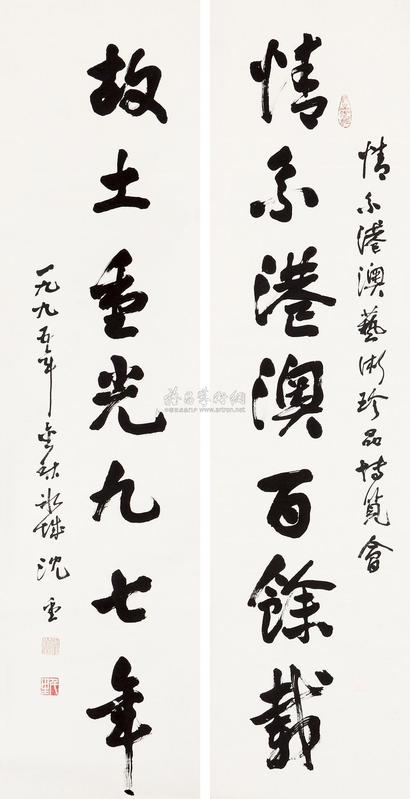 情系港澳藝術珍品博覽會
情系港澳百餘載
故土重光九七年
一九九五年金秋冰城沈雲
www.artron.net